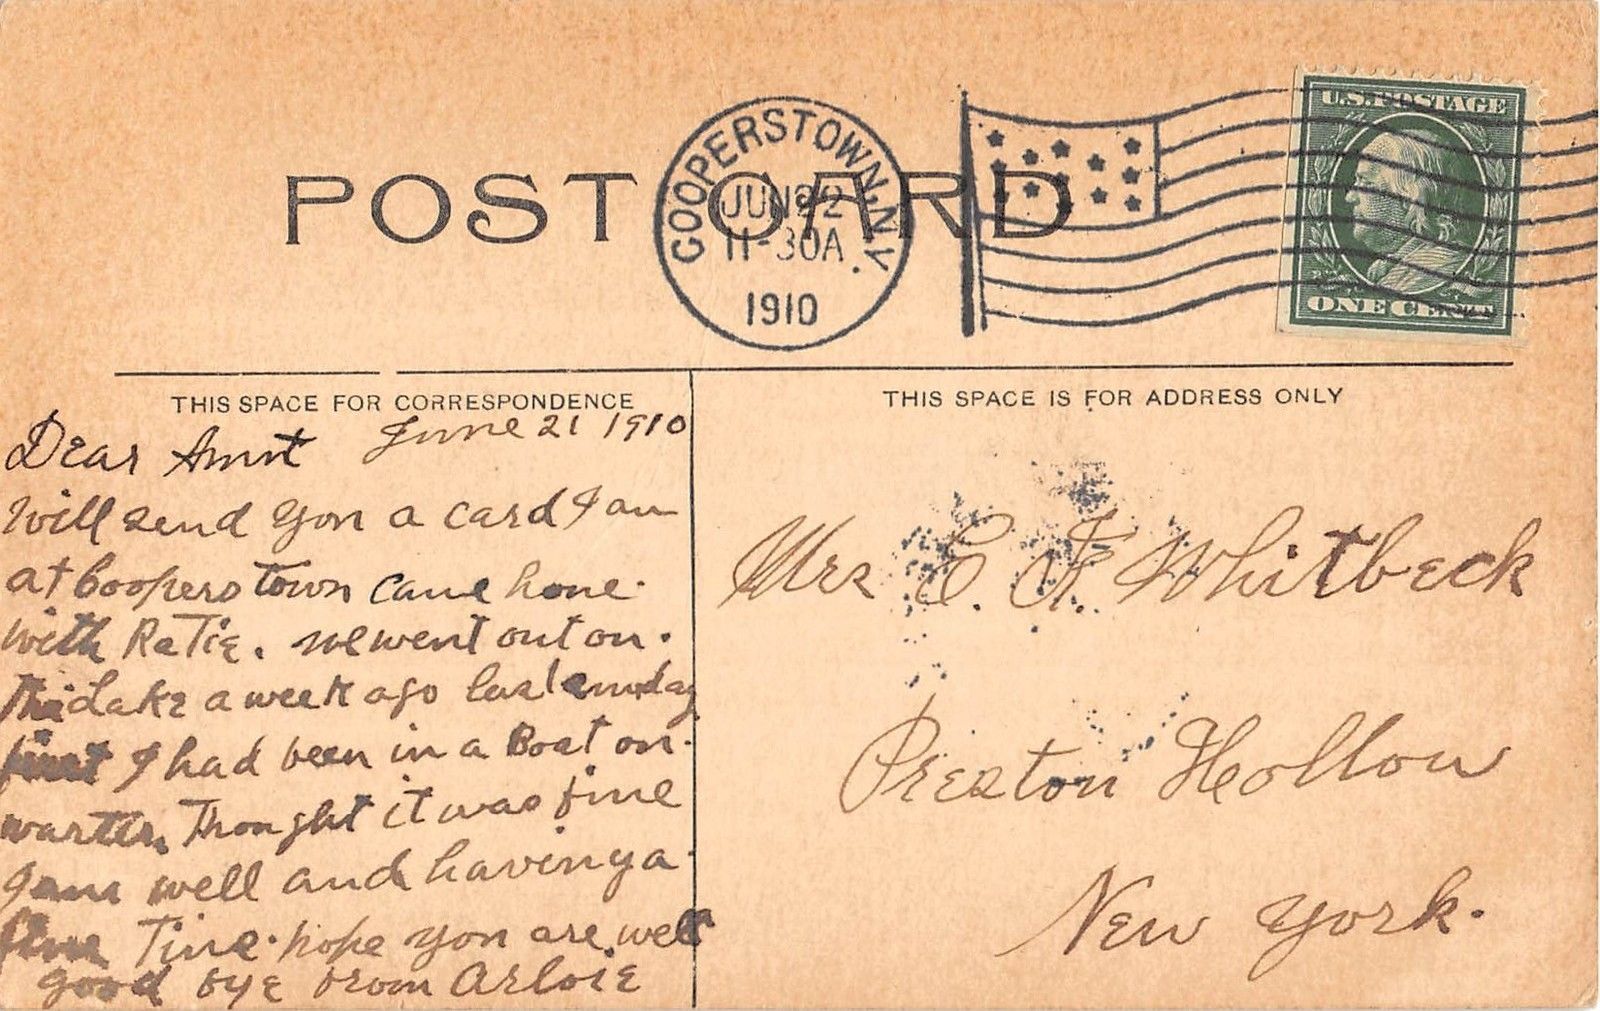 POST CARD
COOPERSTOWN, N.Y.
JUN 22
11-30A
1910
U.S. POSTAGE
ONE CENT
THIS SPACE FOR CORRESPONDENCE
THIS SPACE IS FOR ADDRESS ONLY
June 21 1910
Dear Aunt
Will send you a card I am
at Cooperstown came home
with Katie. we went out on
the Lake a week ago last
first I had been in a Boat on
warter Thought it was fine
I am well and having a
fine Time. hope you are well
good bye from Arloie
Mrs E. F. Whitbeck
Preston Hollow
New York.